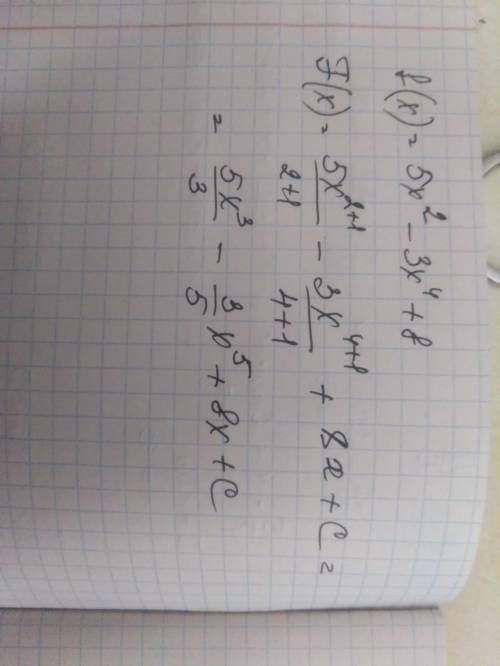 f(x) = 5x² - 3x⁴ + 8
F(x) = 5x²⁺¹/2+1 - 3x⁴⁺¹/4+1 + 8x + C =
= 5x³/3 - 3/5 x⁵ + 8x + C